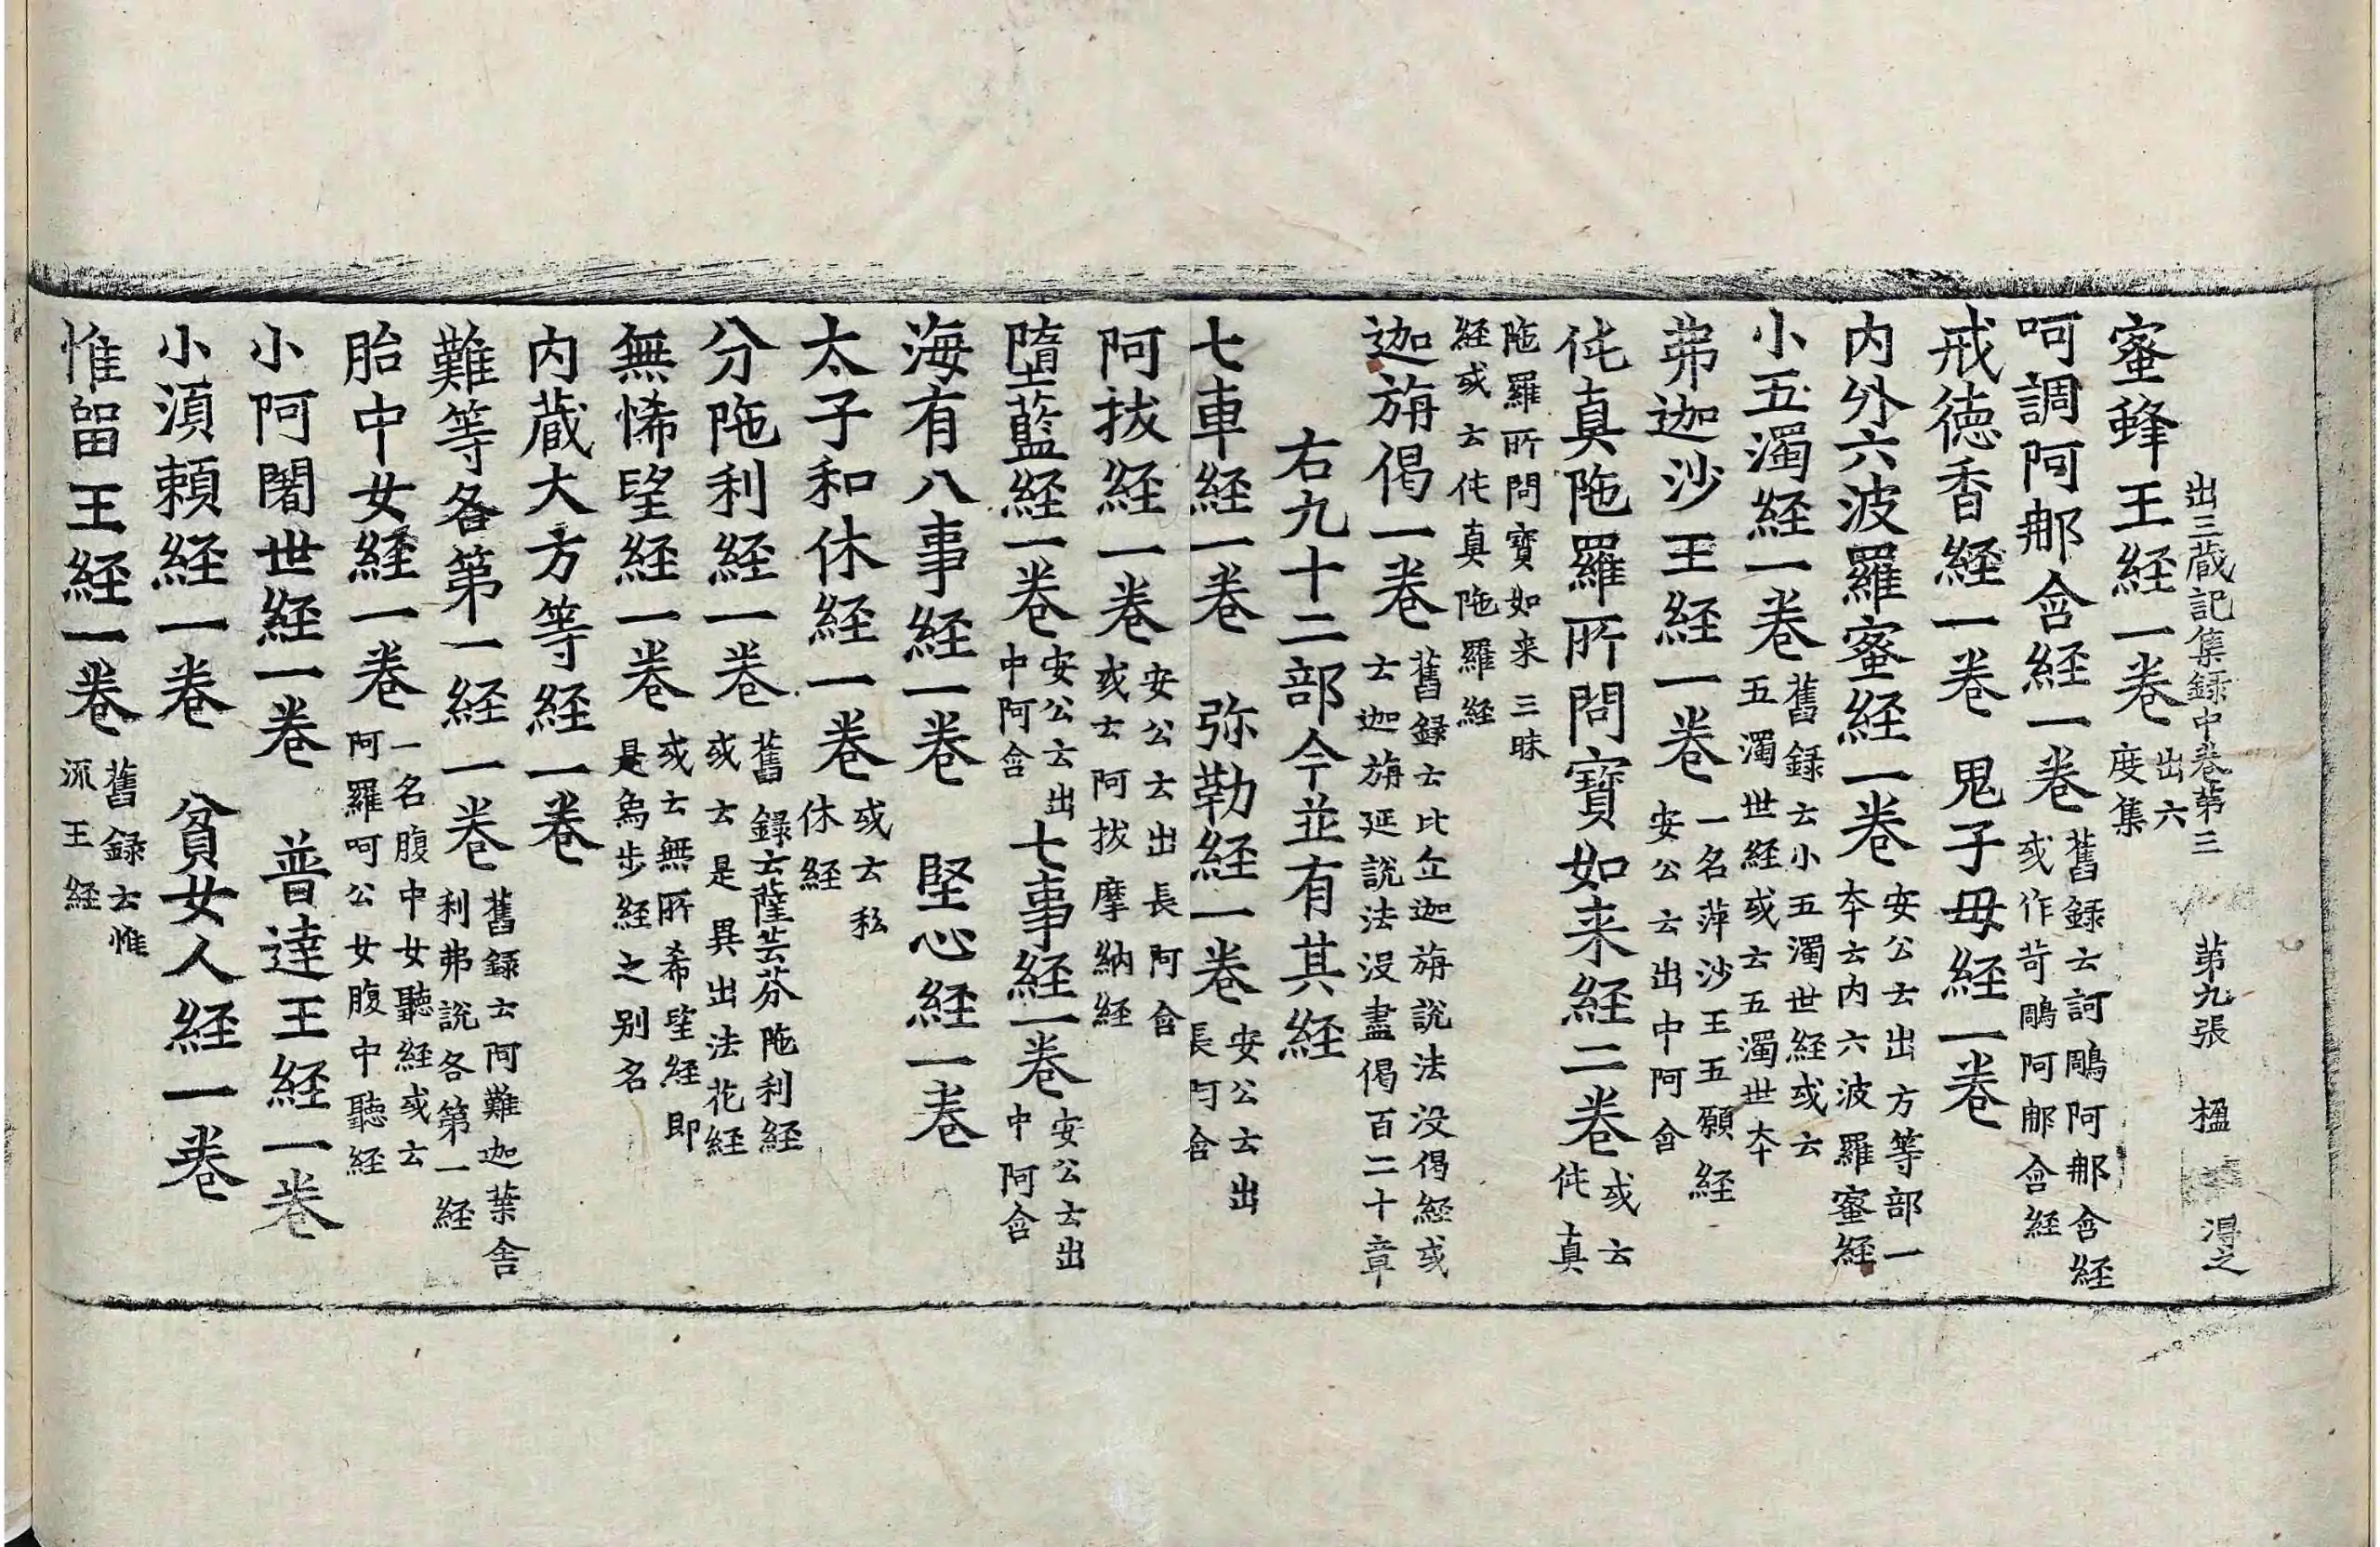 出三藏記集録中卷第三 第九張 楹 淂之
蜜蜂王経一卷 出六度集
呵調阿𨚗含経一卷 舊録云訶鵰阿𨚗含経或作苛鵰阿𨚗含経
戒德香経一卷 鬼子母経一卷
内外六波羅蜜経一卷 安公云出方等部一本云内六波羅蜜経
小五濁経一卷 舊録云小五濁世経或云五濁世経或云五濁世本
弗迦沙王経一卷 一名蓱沙王五願経安公云出中阿含
伅真陁羅所問寶如来経二卷 或云伅真
陁羅所問寶如来三昧経或云伅真陁羅経
迦旃偈一卷 舊録云比丘迦旃説法没偈経或云迦旃延説法没盡偈百二十章
右九十二部今並有其経
七車経一卷 弥勒経一卷 安公云出長阿含
阿拔経一卷 安公云出長阿含或云阿拔摩納経
墮藍経一卷 安公云出中阿含 七事経一卷 安公云出中阿含
海有八事経一卷 堅心経一卷
太子和休経一卷 或云私休経
分陁利経一卷 舊録云薩芸芬陁利経或云是異出法花経
無悕望経一卷 或云無所希望経即是象步経之别名
内蔵大方等経一卷
難等各第一経一卷 舊録云阿難迦葉舎利弗説各第一経
胎中女経一卷 一名腹中女聽経或云阿羅呵公女腹中聽経
小阿闍世経一卷 普達王経一卷
小湏頼経一卷 貧女人経一卷
惟留王経一卷 舊録云惟流王経